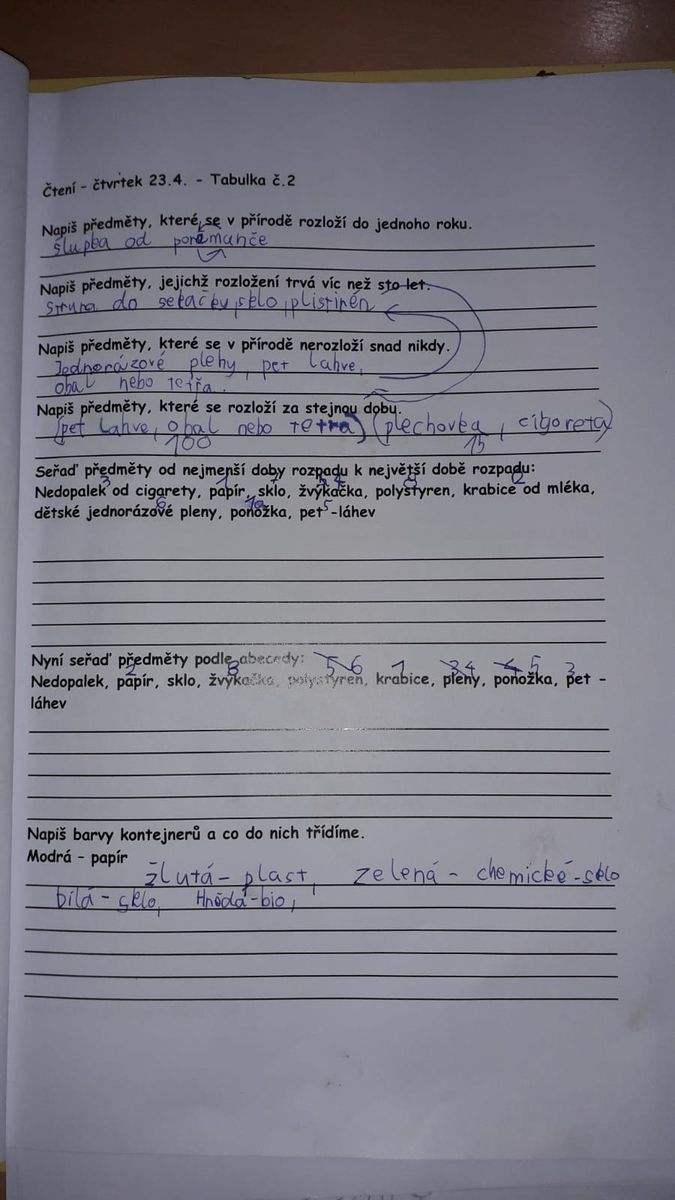 Čtení - čtvrtek 23.4. - Tabulka č.2
Napiš předměty, které se v přírodě rozloží do jednoho roku.
šlupka od
Napiš předměty, jejichž rozložení trvá víc než sto let.
struna do sekačky, sklo,
Napiš předměty, které se v přírodě nerozloží snad nikdy.
Jednorázové plehy, pet lahve,
obal nebo
Napiš předměty, které se rozloží za stejnou dobu.
(pet lahve, obal nebo tetra) (plechovka, cigoreta)
100 15
Seřaď předměty od nejmenší doby rozpadu k největší době rozpadu:
3 1 7 8 2
Nedopalek od cigarety, papír, sklo, žvýkačka, polystyren, krabice od mléka,
6 5
dětské jednorázové pleny, ponožka, pet -láhev
Nyní seřaď předměty podle abecedy:
2 8 5 6 1 3 4 4 5 3
Nedopalek, papír, sklo, žvýkačka, polystyren, krabice, pleny, ponožka, pet -
láhev
Napiš barvy kontejnerů a co do nich třídíme.
Modrá - papír
žlutá - plast, zelená - chemické-sklo
bílá - sklo, Hnědá-bio,